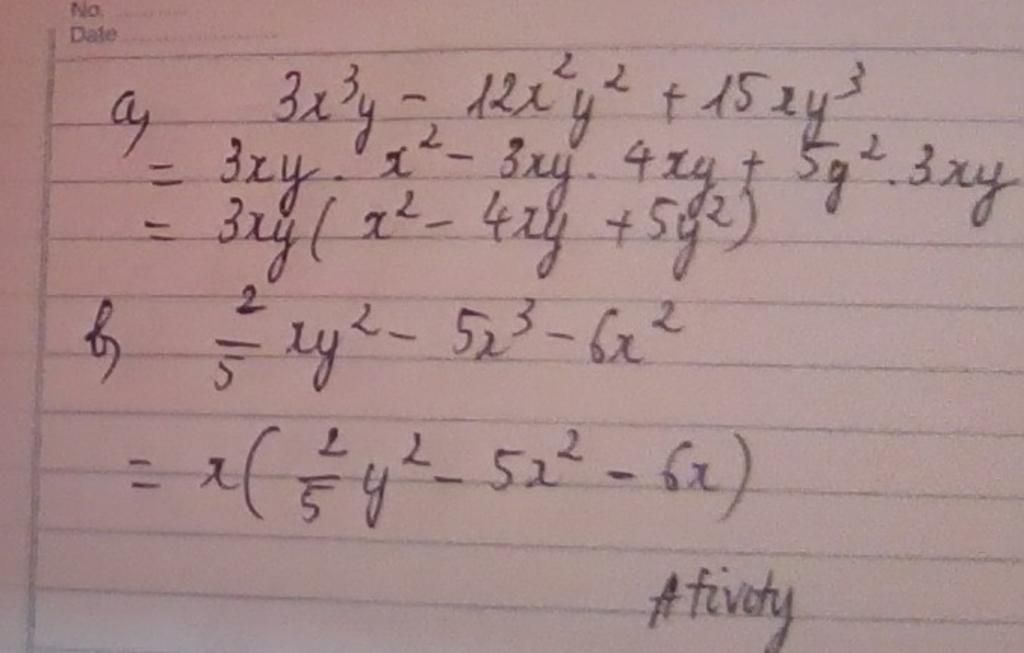 No.
Date
a, 3x³y - 12x²y² + 15xy³
= 3xy . x² - 3xy . 4xy + 5y² . 3xy
= 3xy ( x² - 4xy + 5y² )
b, 2/5 xy² - 5x³ - 6x²
= x ( 2/5 y² - 5x² - 6x )